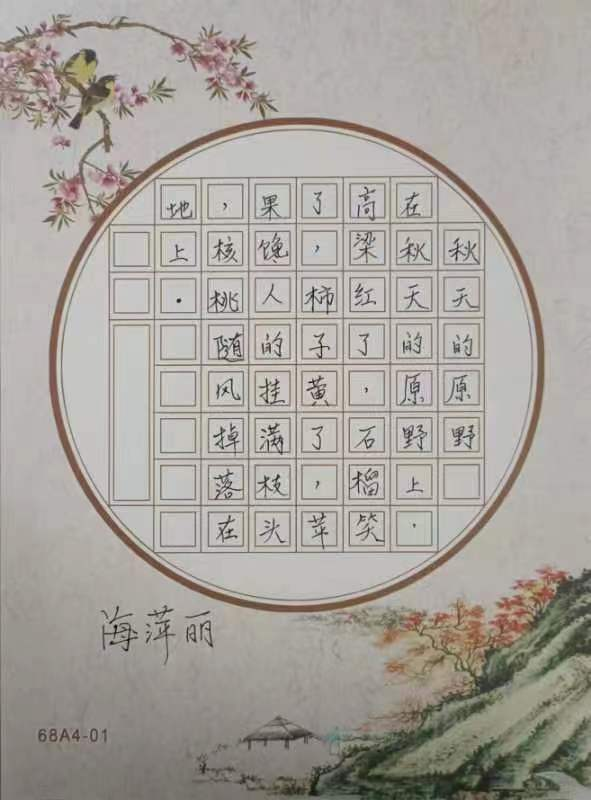 秋天的原野
在秋天的原野上，
高梁红了，石榴笑
了，柿子黄了，苹
果馋人的挂满枝头
，核桃随风掉落在
地上.
海萍丽
68A4-01